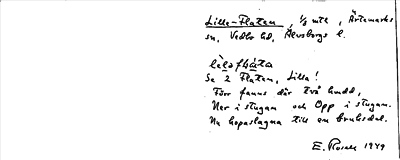 Lilla-Flaten, 1/8 mtl, Ärtemarks
sn, Vedbo hd, Älvsborgs l.
Se 2 Flaten, Lilla!
Förr fanns där två hudd,
Ner i stugan och Opp i stugan.
Nu hopaslagna till en bruksdel.
E. Rosell 1949